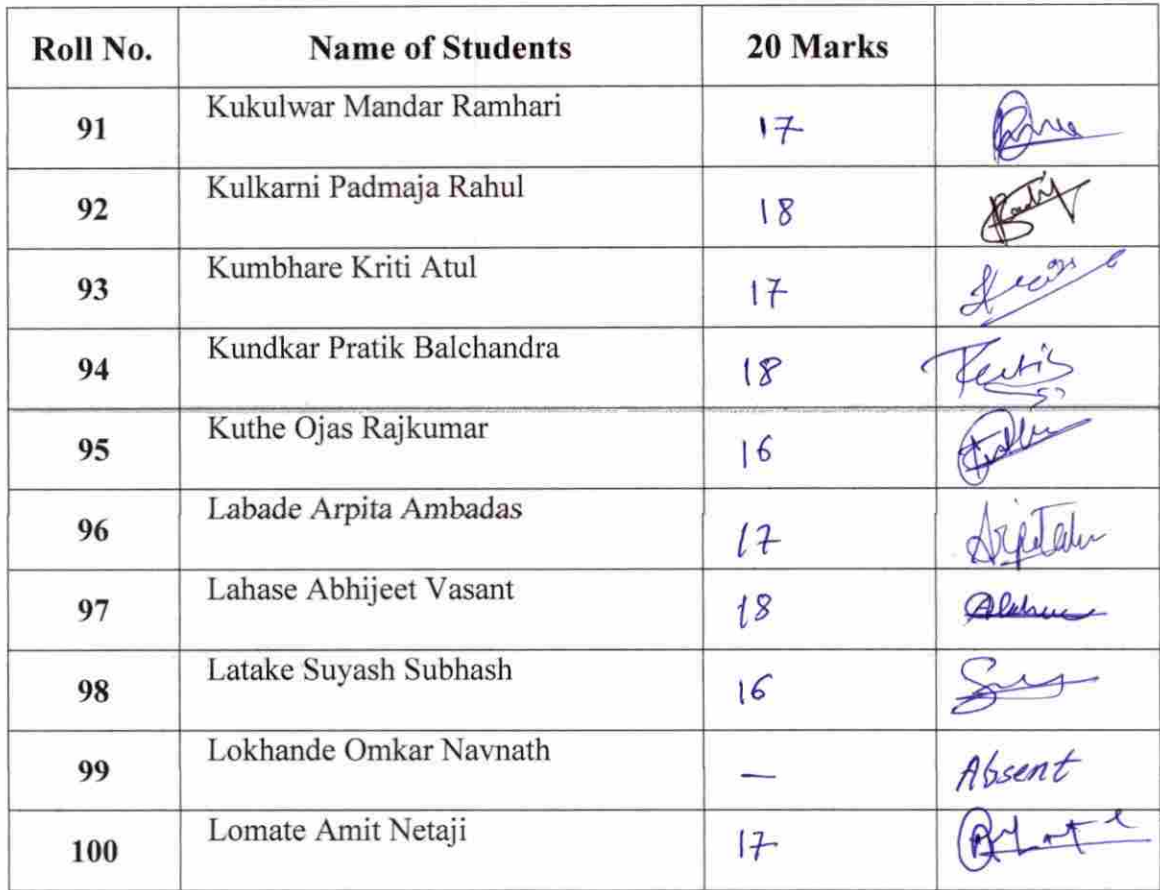 Roll No. Name of Students 20 Marks
91 Kukulwar Mandar Ramhari 17
92 Kulkarni Padmaja Rahul 18
93 Kumbhare Kriti Atul 17
94 Kundkar Pratik Balchandra 18
95 Kuthe Ojas Rajkumar 16
96 Labade Arpita Ambadas 17
97 Lahase Abhijeet Vasant 18
98 Latake Suyash Subhash 16
99 Lokhande Omkar Navnath — Absent
100 Lomate Amit Netaji 17